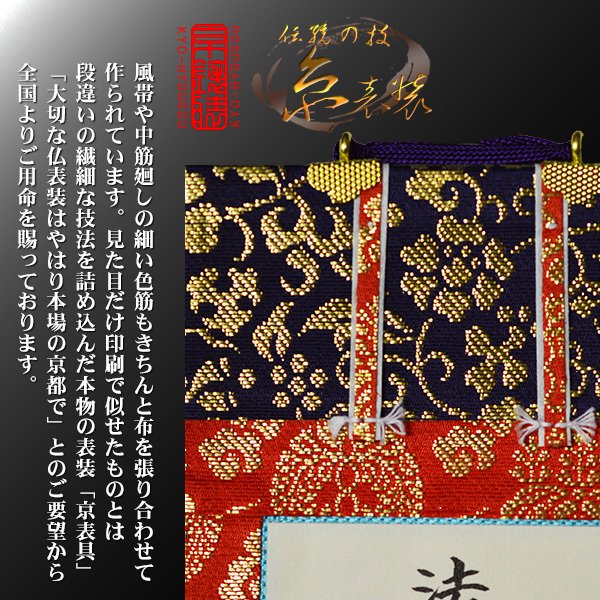 伝統の技
京表装
風帯や中筋廻しの細い色筋もきちんと布を張り合わせて
作られています。見た目だけ印刷で似せたものとは
段違いの繊細な技法を詰め込んだ本物の表装「京表具」
「大切な仏表装はやはり本場の京都で」とのご要望から
全国よりご用命を賜っております。
法